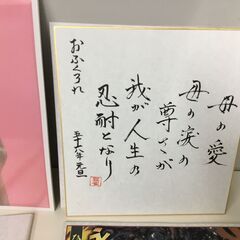 母の愛
母の涙の
尊さが
我が人生の
忍耐となり
おふくろれ
五十八年元旦